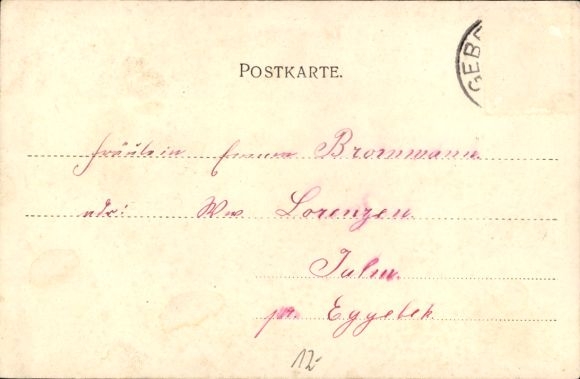 POSTKARTE.
GEB
Fräulein Emma Brommann
adr: Ww Lorenzen
Julm.
pr. Eggebek
12-